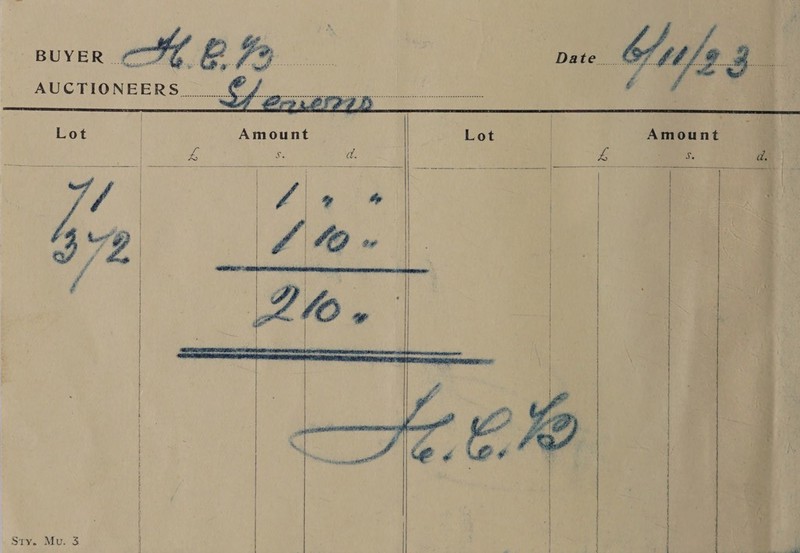 BUYER H.C.B Date 6/11/23
AUCTIONEERS Stevens
Lot Amount Lot Amount
£ s. d. £ s. d.
71 1 " "
372 1 10 "
2 10 "
H.C.B
Sty. Mu. 3